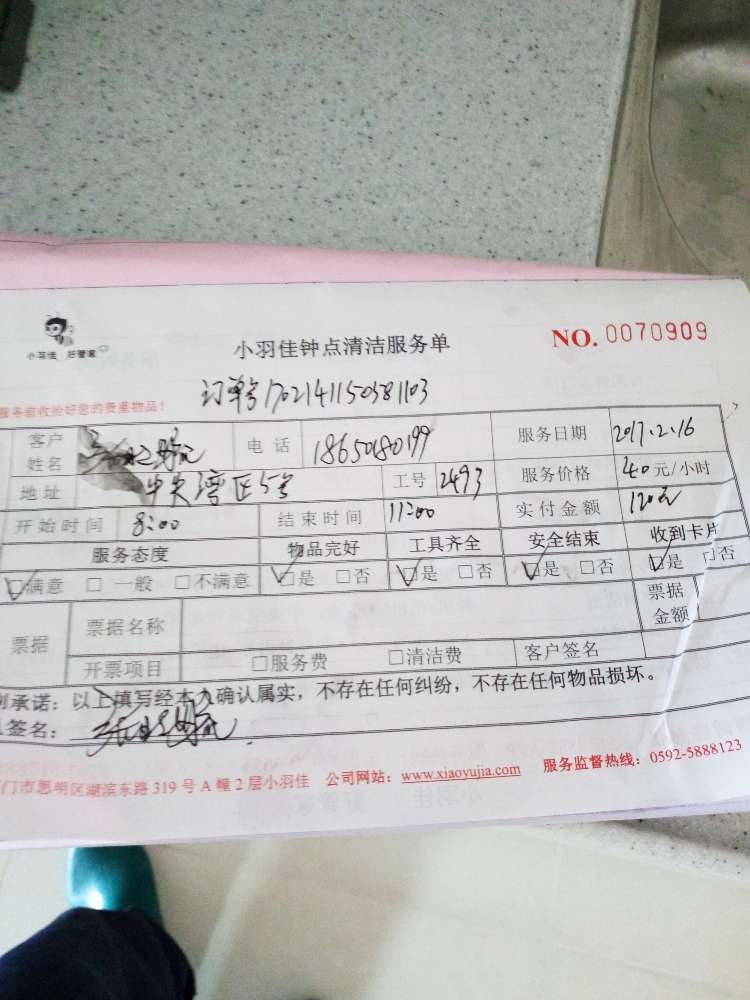 小羽佳 好管家
小羽佳钟点清洁服务单
NO. 0070909
服务前收拾好您的贵重物品!
订单号
客户姓名 电话 18650180199 服务日期 2017.2.16
地址 中央湾区5号 工号 2493 服务价格 40元/小时
开始时间 8:00 结束时间 11:00 实付金额 120元
服务态度 物品完好 工具齐全 安全结束 收到卡片
☑满意 □一般 □不满意 ☑是 □否 ☑是 □否 ☑是 □否 ☑是 □否
票据 票据名称 票据金额
开票项目 □服务费 □清洁费 客户签名
承诺:以上填写经本人确认属实,不存在任何纠纷,不存在任何物品损坏。
签名:
门市思明区湖滨东路319号A幢2层小羽佳 公司网站:www.xiaoyujia.com 服务监督热线:0592-5888123